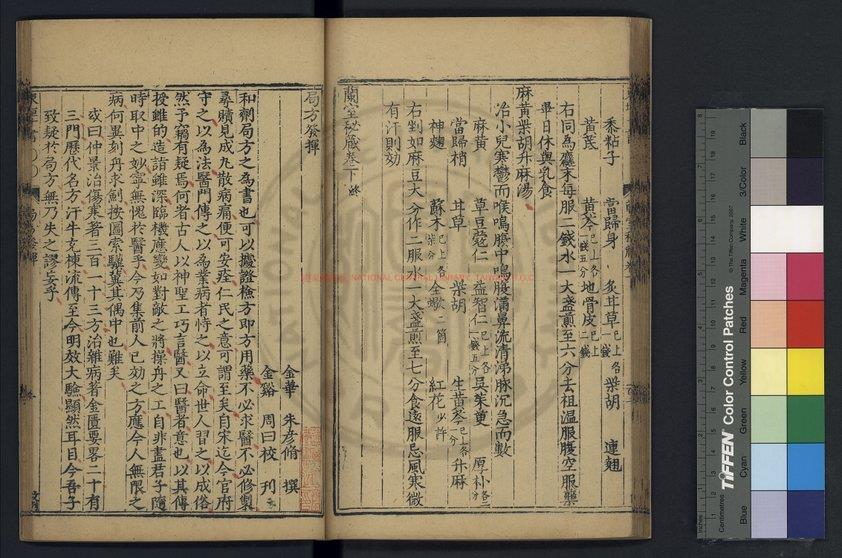 黍粘子　當歸身　炙甘草已上各一錢　柴胡　連翹
黃茋　黃芩已上各一錢五分　地骨皮已上二錢
右同為麄末每服二錢水一大盞煎至六分去柤温服腹空服藥
畢日休與乳食
麻黃柴胡升麻湯
治小兒寒鬱而喉鳴腹中鳴腹滿鼻流清涕脉沉急而數
麻黃　草豆蔻仁　益智仁已上各一錢五分　吳茱萸　厚朴各二分
當歸梢　甘草　柴胡　生黃芩已上各一分　升麻
神麴　蘇木已上各半分　全蝎二箇　紅花少許
右剉如麻豆大分作二服水一大盞煎至七分食遠服忌風寒微
有汗則効
蘭室秘藏卷下終
局方發揮
金華　朱彥脩　撰
金谿　周曰校　刊
和劑局方之為書也可以據證檢方即方用藥不必求醫不必修製
尋贖見成丸散病痛便可安痊仁民之意可謂至矣自宋迄今官府
守之以為法醫門傳之以為業病者恃之以立命世人習之以成俗
然予竊有疑焉何者古人以神聖工巧言醫又曰醫者意也以其傳
授雖的造詣雖深臨機應變如對敵之將操舟之工自非盡君子隨
時取中之妙寧無愧於醫乎今乃集前人已効之方應今人無限之
病何異刻舟求劍按圖索驥冀其偶中也難矣
或曰仲景治傷寒著三百一十三方治雜病著金匱要畧二十有
三門歷代名方汗牛充棟流傳至今明效大驗顯然耳目今吾子
致疑於局方無乃失之謬妄乎
NATIONAL CENTRAL LIBRARY
TIFFEN Color Control Patches
© The Tiffen Company, 2007
Centimetres
Inches
Blue
Cyan
Green
Yellow
Red
Magenta
White
3/Color
Black